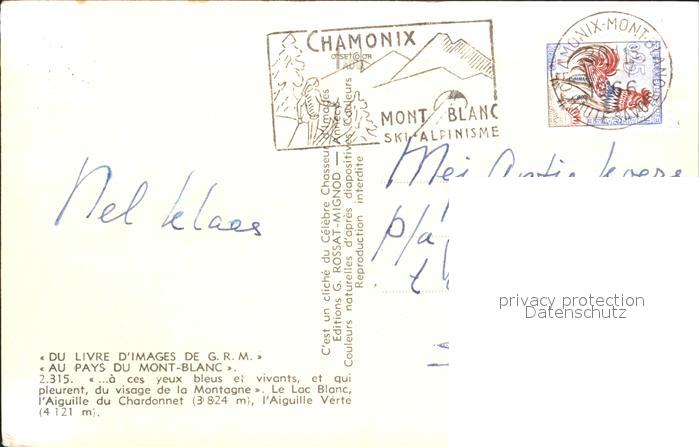 CHAMONIX
MONT BLANC
SKI-ALPINISME
CHAMONIX-MONT-BLANC
Nel Klaas
C'est un cliché du Célèbre Chasseur d'Images
Editions G. ROSSAT-MIGNOD —
Couleurs naturelles d'après diapositives Couleurs
Reproduction interdite
p/a
« DU LIVRE D'IMAGES DE G. R. M. »
« AU PAYS DU MONT-BLANC ».
2.315. « ...à ces yeux bleus et vivants, et qui
pleurent, du visage de la Montagne ». Le Lac Blanc,
l'Aiguille du Chardonnet (3 824 m), l'Aiguille Verte
(4 121 m).
privacy protection
Datenschutz